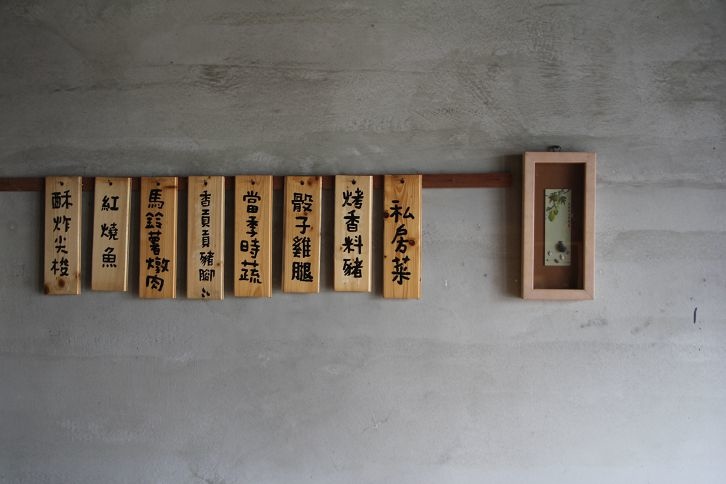 私房菜
烤香料豬
骰子雞腿
當季時蔬
香貢貢豬腳
馬鈴薯燉肉
紅燒魚
酥炸尖梭